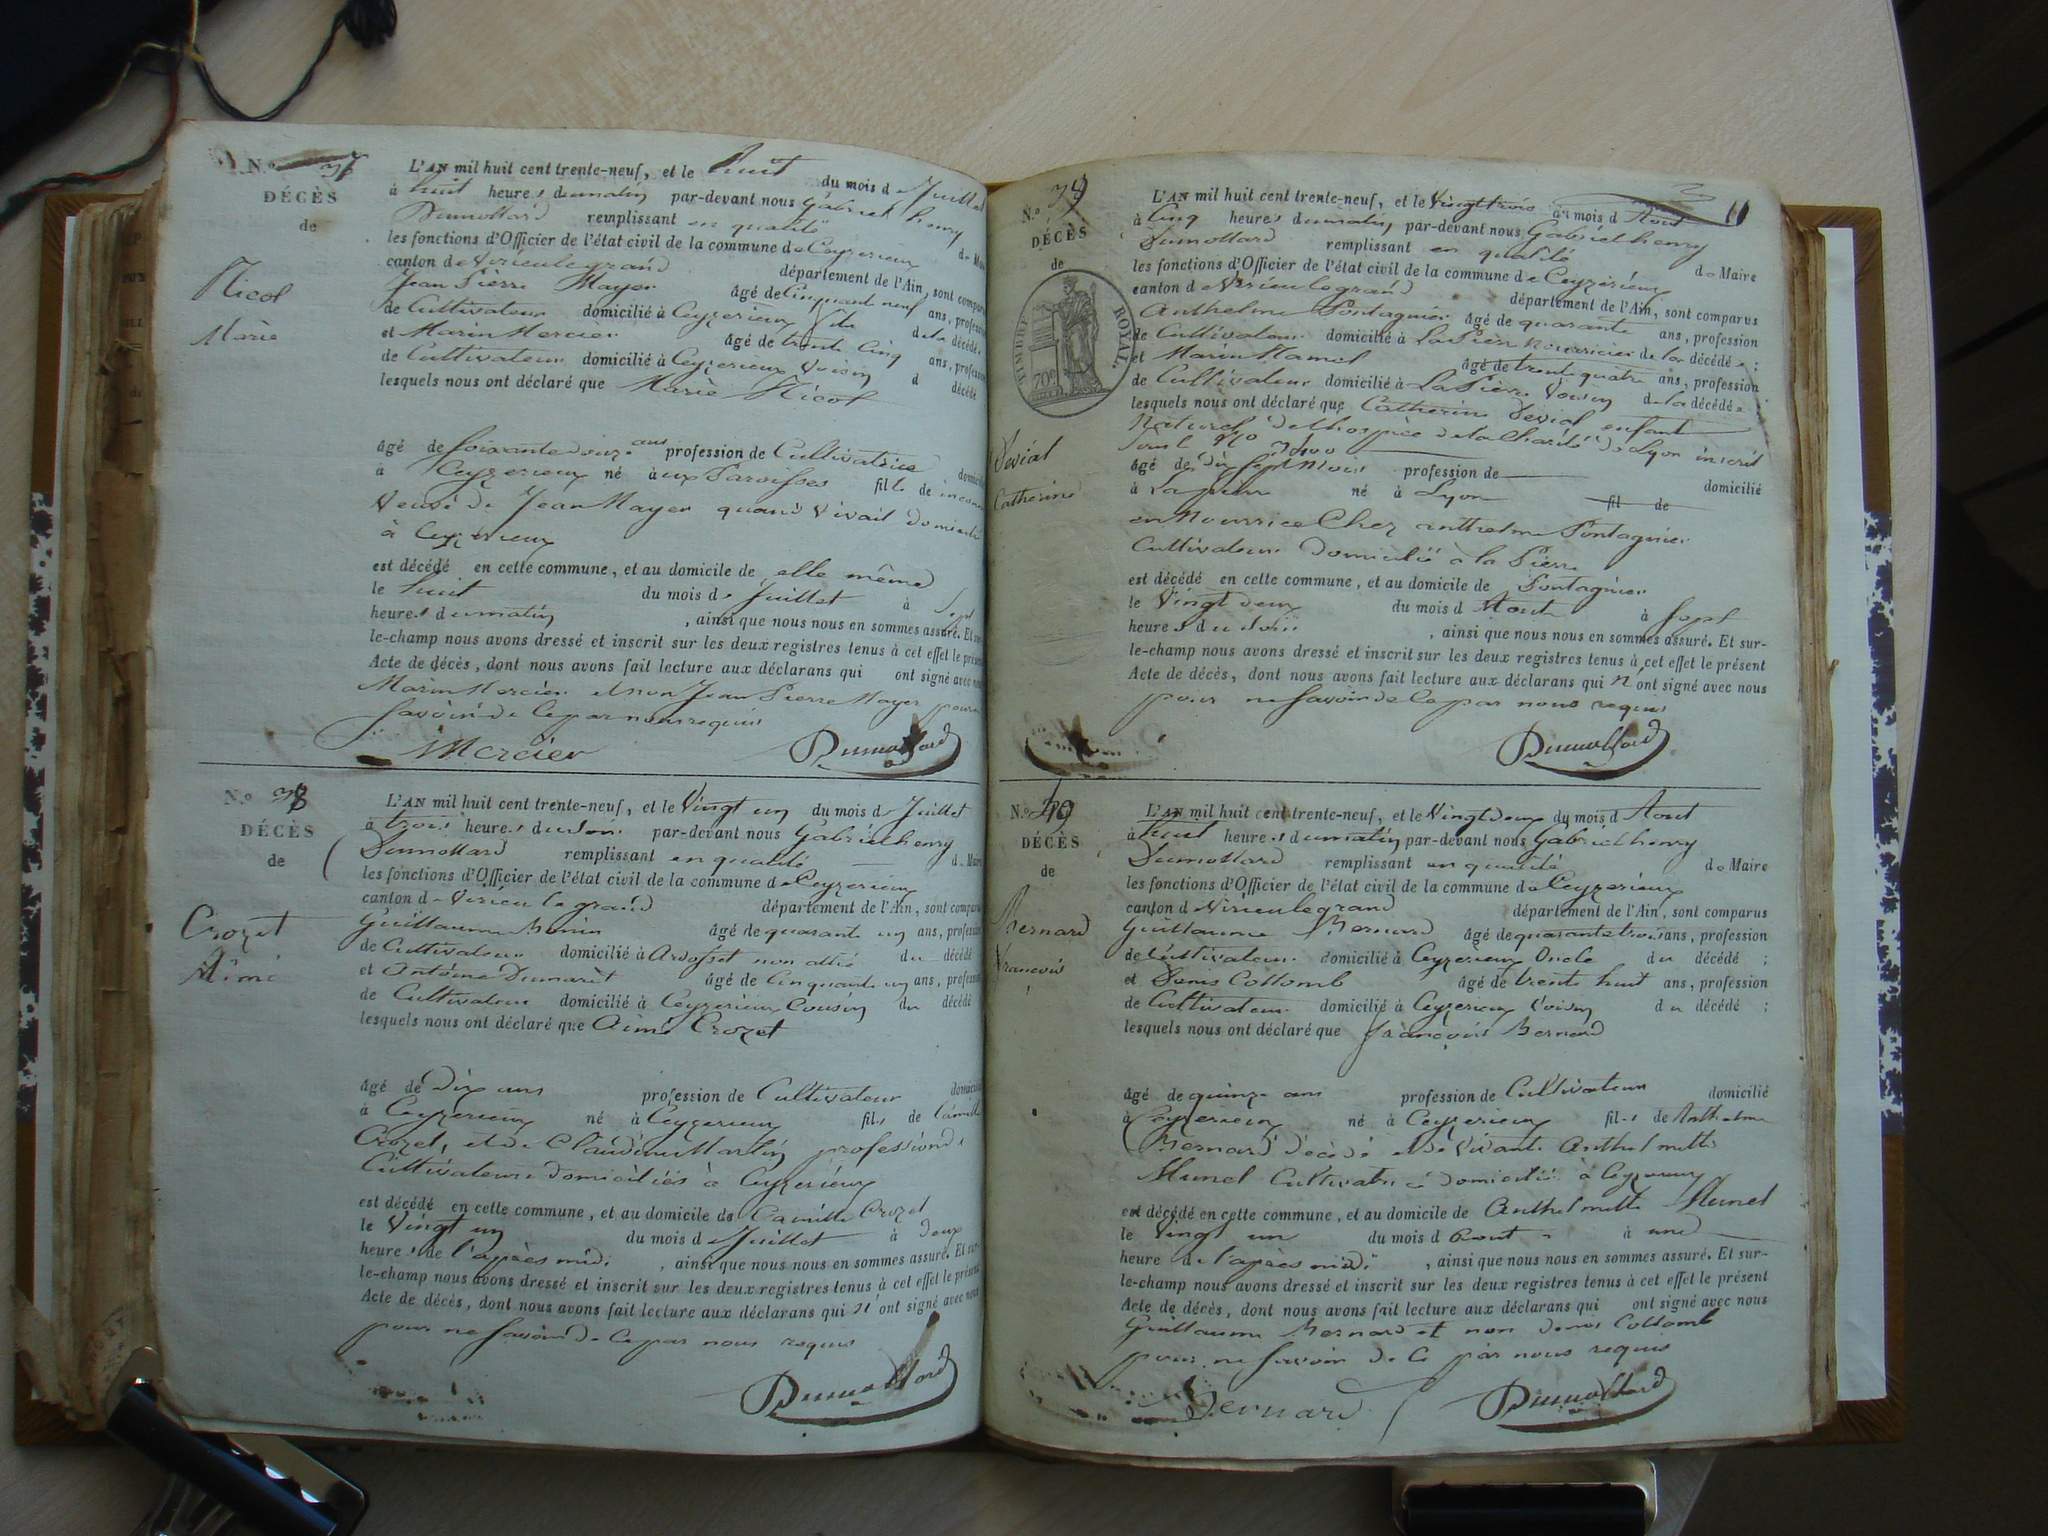 N.o 37
DÉCÈS
de
Nicol
Marie
L'AN mil huit cent trente-neuf, et le huit du mois de Juillet
à huit heures du matin par-devant nous Gabriel henry
Dumollard remplissant en qualité de Maire
les fonctions d'Officier de l'état civil de la commune de Ceyzerieux
canton de Virieu le grand département de l'Ain, sont comparus
Jean Pierre Mayer âgé de Cinquant neuf ans, profession
de Cultivateur domicilié à Ceyzerieux fils de la décédée
et Marin Mercier âgé de trente Cinq ans, profession
de Cultivateur domicilié à Ceyzerieux Voisin d décédé
lesquels nous ont déclaré que Marie Nicol
âgé de soixante douze ans profession de Cultivatrice domicilié
à Ceyzerieux né à aux Paroisses fille de
Veuve de Jean Mayer quand Vivait domicilié
à Ceyzerieux
est décédé en cette commune, et au domicile de elle même
le huit du mois de Juillet à Sept
heures du matin, ainsi que nous nous en sommes assuré. Et sur-
le-champ nous avons dressé et inscrit sur les deux registres tenus à cet effet le présent
Acte de décès, dont nous avons fait lecture aux déclarans qui ont signé avec nous
Marin Mercier et non Jean Pierre Mayer pour ne
Savoir de Ce par nous requis
Mercier Dumollard
N.o 38
DÉCÈS
de
Crozet
Aimé
L'AN mil huit cent trente-neuf, et le Vingt un du mois de Juillet
à trois heures du soir par-devant nous Gabriel henry
Dumollard remplissant en qualité de Maire
les fonctions d'Officier de l'état civil de la commune de Ceyzerieux
canton de Virieu le grand département de l'Ain, sont comparus
Guillaume Bonin âgé de quarante un ans, profession
de Cultivateur domicilié à Ardosset non allié du décédé
et Antoine Dumarêt âgé de Cinquante un ans, profession
de Cultivateur domicilié à Ceyzerieux Cousin du décédé
lesquels nous ont déclaré que Aimé Crozet
âgé de Dix ans profession de Cultivateur domicilié
à Ceyzerieux né à Ceyzerieux fils de Camille
Crozet, et de Claudine Martin profession de
Cultivateurs domiciliés à Ceyzerieux
est décédé en cette commune, et au domicile de Camille Crozet
le Vingt un du mois de Juillet à deux
heures de l'après midi, ainsi que nous nous en sommes assuré. Et sur-
le-champ nous avons dressé et inscrit sur les deux registres tenus à cet effet le présent
Acte de décès, dont nous avons fait lecture aux déclarans qui n'ont signé avec nous
pour ne Savoir de Ce par nous requis
Dumollard
N.o 39
DÉCÈS
de
TIMBRE ROYAL
70c
Devial
Catherine
L'AN mil huit cent trente-neuf, et le Vingt trois du mois d Aout
à Cinq heures du matin, par-devant nous Gabriel henry
Dumollard remplissant en qualité de Maire
les fonctions d'Officier de l'état civil de la commune de Ceyzerieux
canton de Virieu le grand département de l'Ain, sont comparus
Anthelme Pontagnier âgé de quarante ans, profession
de Cultivateur domicilié à La Pierre Nourricier de la décédée;
et Marin Hamel âgé de trente quatre ans, profession
de Cultivateur domicilié à La Pierre Voisin de la décédée
lesquels nous ont déclaré que Catherine Devial enfant
Naturel de l'hospice de la Charité de Lyon inscrit
sous le No
âgé de dix sept Mois profession de domicilié
à La pierre né à Lyon fil de
en Nourrice Chez anthelme Pontagnier
Cultivateur domicilié à la Pierre
est décédé en cette commune, et au domicile de Pontagnier
le Vingt deux du mois d Aout à Sept
heures du soir, ainsi que nous nous en sommes assuré. Et sur-
le-champ nous avons dressé et inscrit sur les deux registres tenus à cet effet le présent
Acte de décès, dont nous avons fait lecture aux déclarans qui n'ont signé avec nous
pour ne Savoir de Ce par nous requis
Dumollard
N.o 40
DÉCÈS
de
Bernard
Francois
L'AN mil huit cent trente-neuf, et le Vingt Deux du mois d Aout
à huit heures du matin par-devant nous Gabriel henry
Dumollard remplissant en qualité de Maire
les fonctions d'Officier de l'état civil de la commune de Ceyzerieux
canton de Virieu le grand département de l'Ain, sont comparus
Guillaume Bernard âgé de quarante trois ans, profession
de Cultivateur domicilié à Ceyzerieux Oncle du décédé;
et Denis Collomb âgé de trente huit ans, profession
de Cultivateur domicilié à Ceyzerieux Voisin du décédé;
lesquels nous ont déclaré que françois Bernard
âgé de quinze ans profession de Cultivateur domicilié
à Ceyzerieux né à Ceyzerieux fils de Anthelme
Bernard décédé et de Vivante Anthelmette
Munel Cultivatrice domicilié à Ceyzerieux
est décédé en cette commune, et au domicile de Anthelmette Munel
le Vingt un du mois d Aout à une
heure de l'après midi, ainsi que nous nous en sommes assuré. Et sur-
le-champ nous avons dressé et inscrit sur les deux registres tenus à cet effet le présent
Acte de décès, dont nous avons fait lecture aux déclarans qui ont signé avec nous
Guillaume Bernard et non denis Collomb
pour ne Savoir de Ce par nous requis
Bernard Dumollard